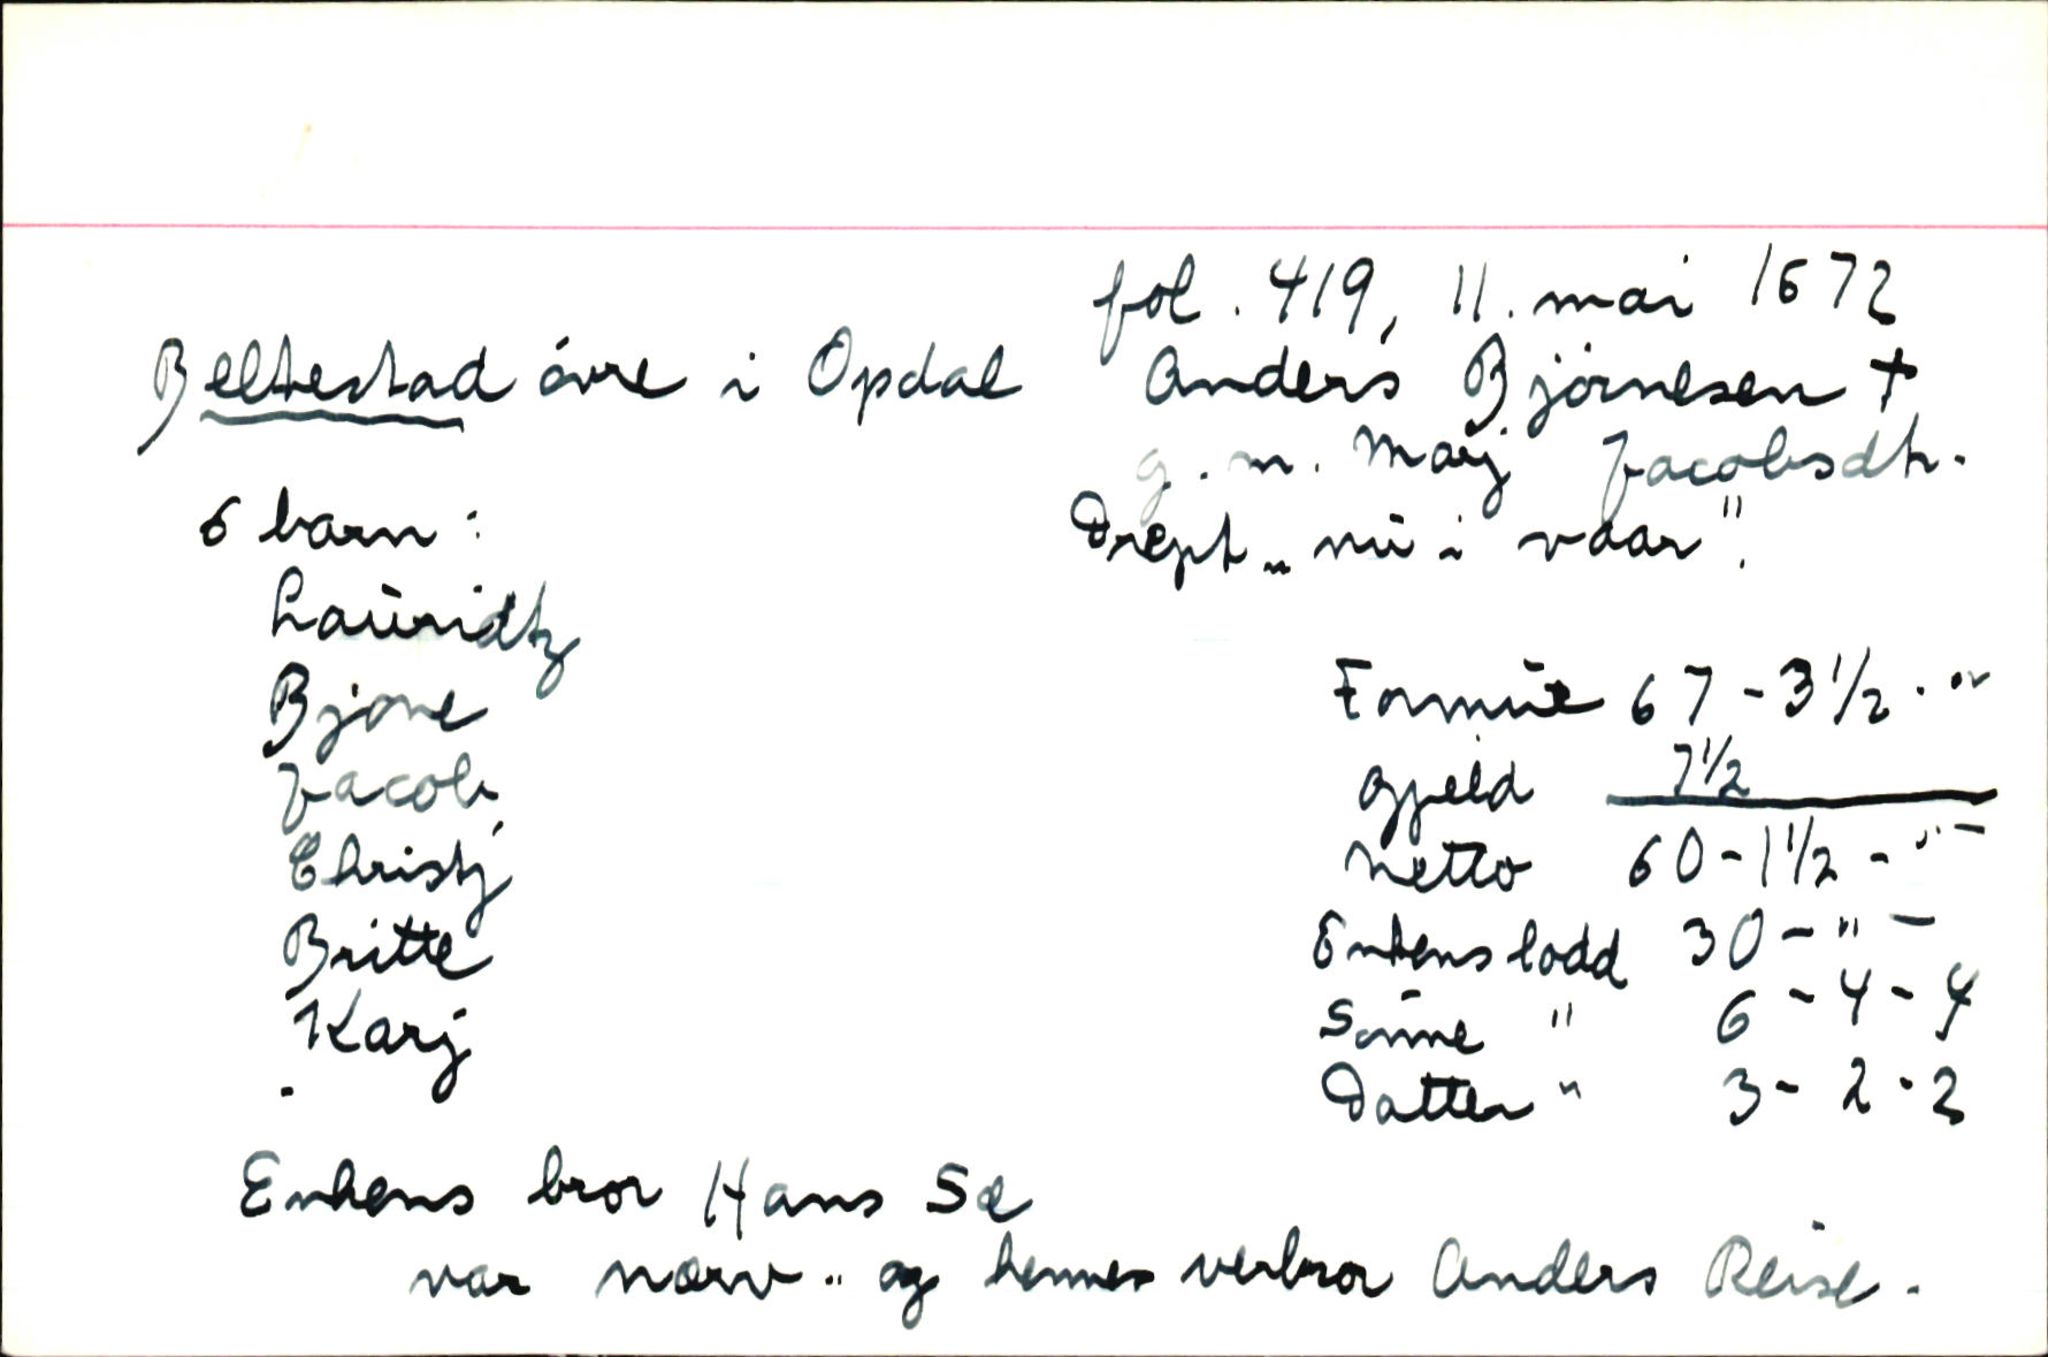 fol. 419, 11. mai 1672
Beltestad óvre i Opdal Anders Bjórnesen †
g. m. Marj Jacobsdtr.
6 barn: Drept „nú i vaar".
Laúridtz
Bjóne Formúe 67-3½-"
Jacob Gjeld 7½
Christj Netto 60-1½-"-
Britte Enkens lodd 30-"-
Karj Sónne " 6-4-4
Datter " 3-2-2
Enkens bror Hans Sæ
var nærv.. og hennes verbror Anders Reise.